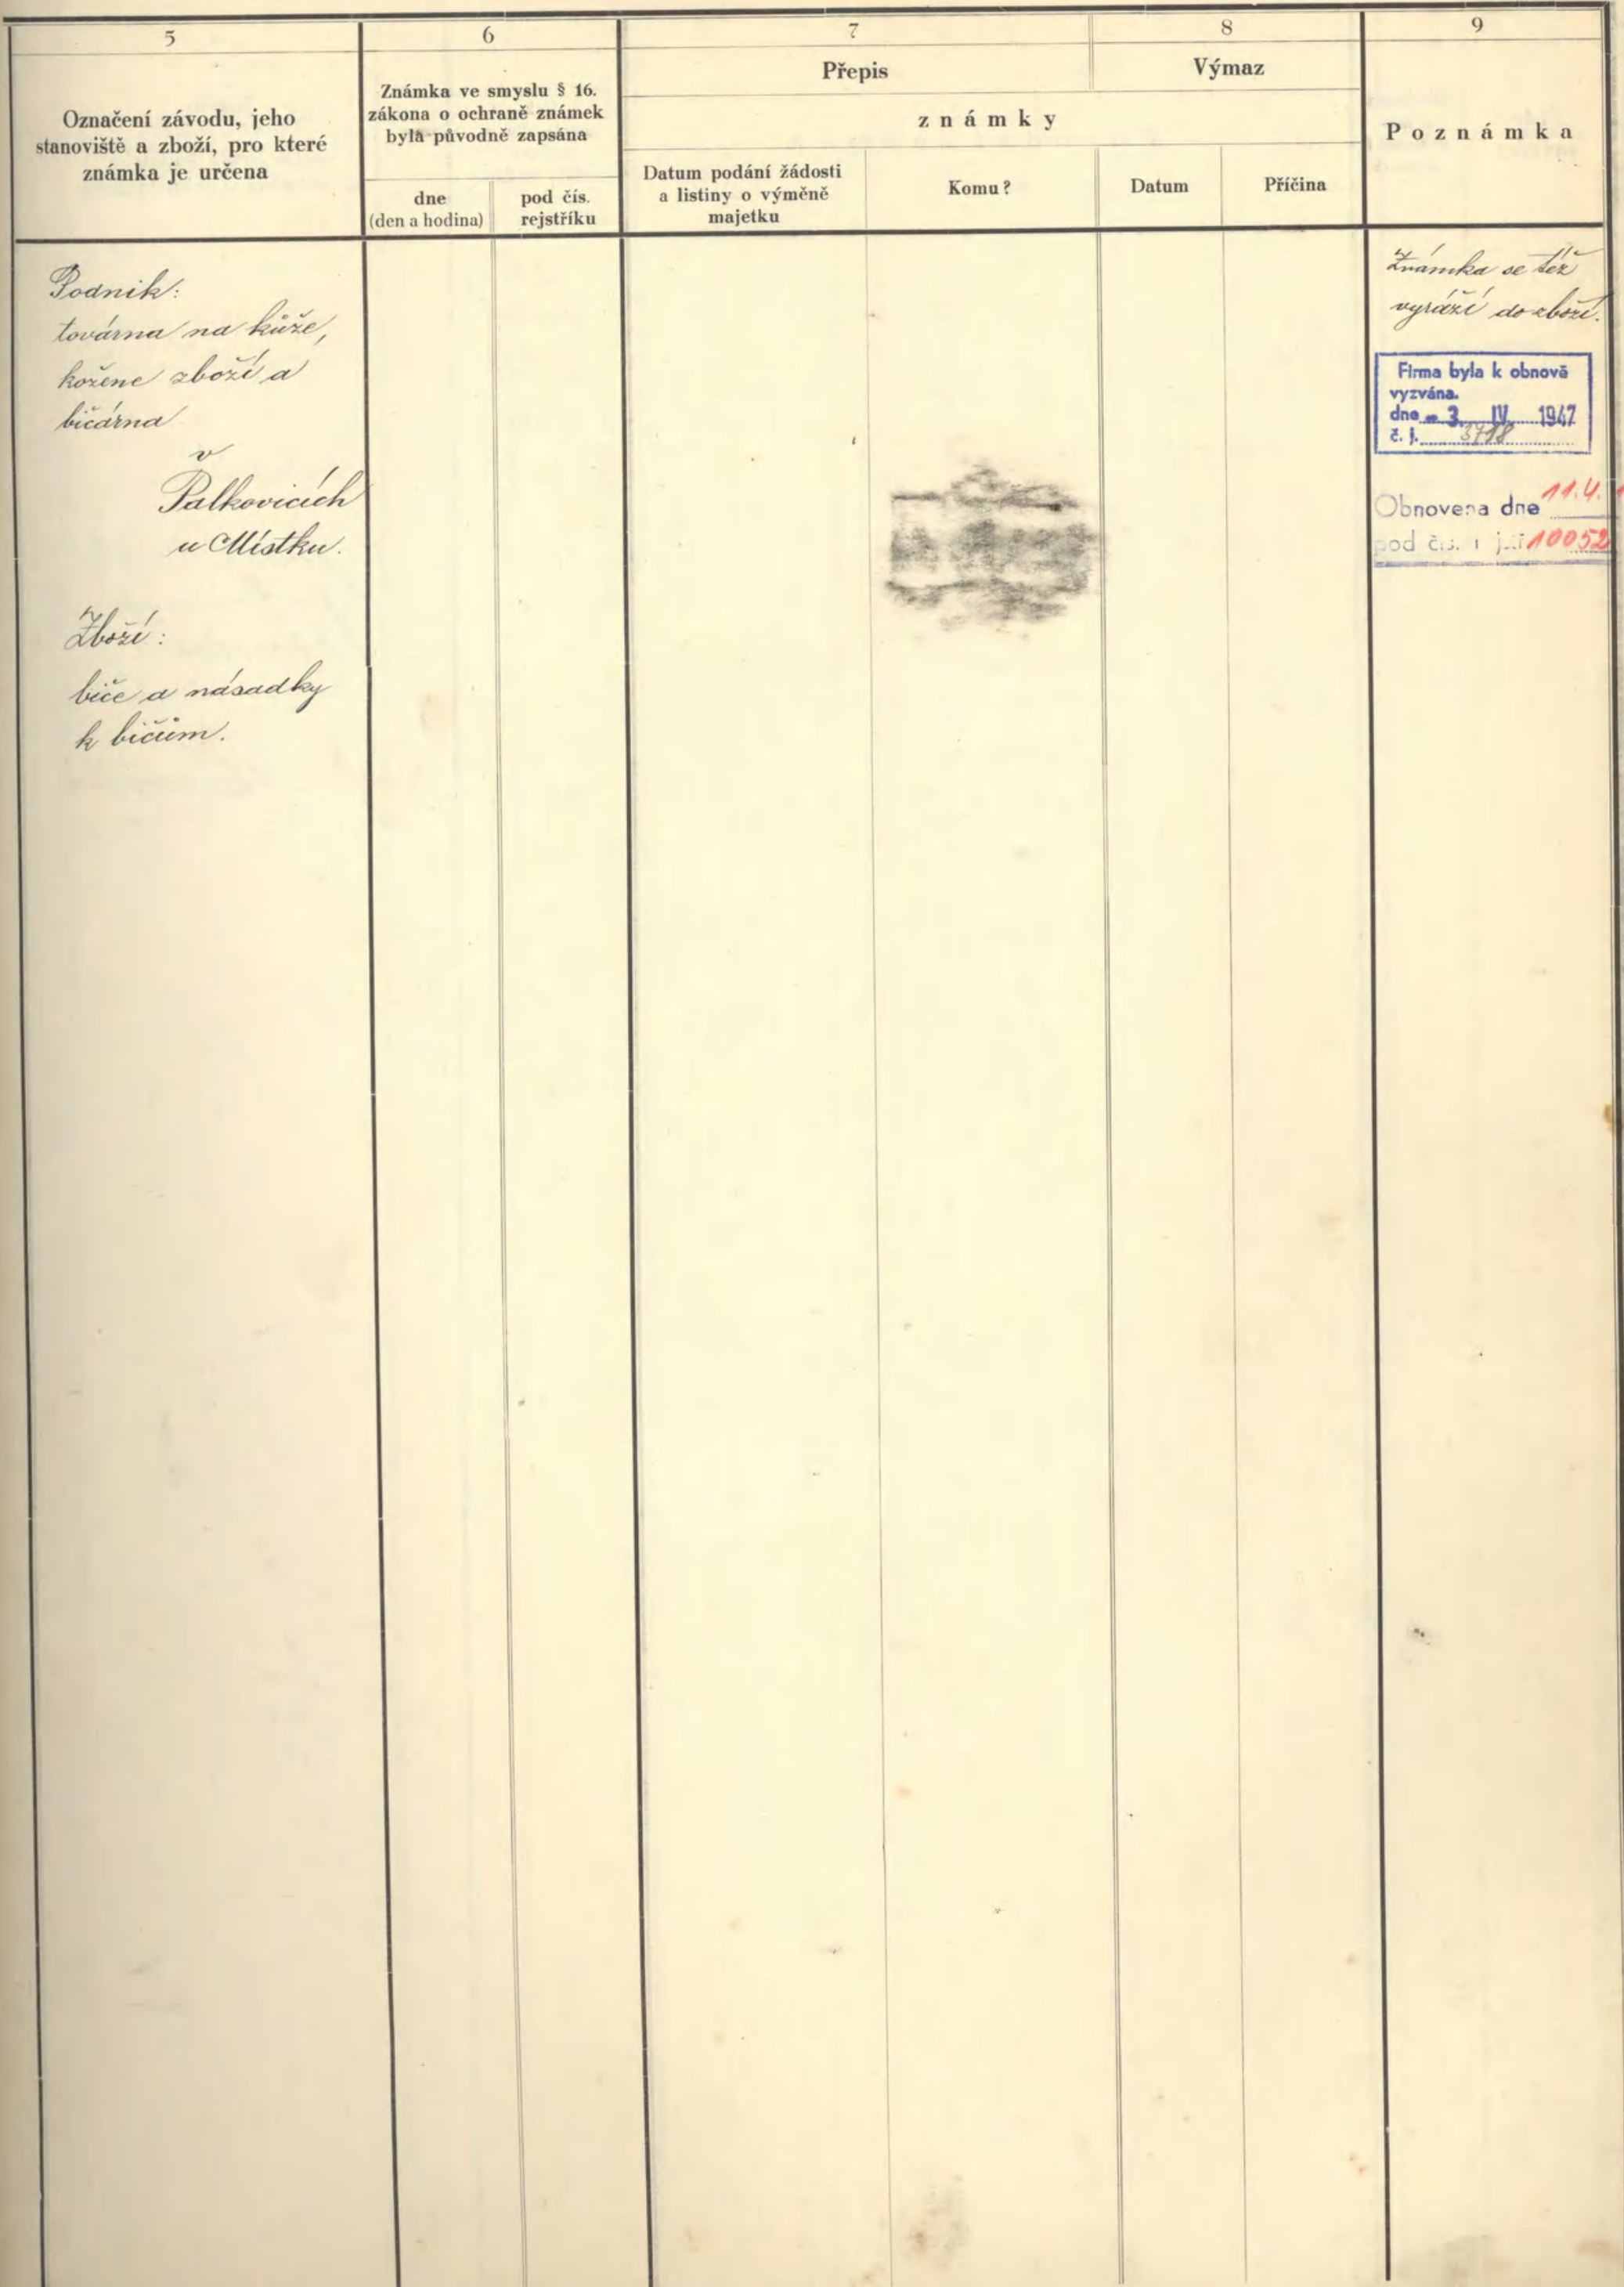 5
6
7
8
9
Označení závodu, jeho
stanoviště a zboží, pro které
známka je určena
Známka ve smyslu § 16.
zákona o ochraně známek
byla původně zapsána
dne
(den a hodina)
pod čís.
rejstříku
Přepis
Výmaz
známky
Datum podání žádosti
a listiny o výměně
majetku
Komu?
Datum
Příčina
Poznámka
Podnik:
továrna na kůže,
kožené zboží a
bičárna
v
Palkovicích
u Místku.
Zboží:
biče a násadky
k bičům.
Známka se též
vyráží do zboží.
Firma byla k obnově
vyzvána.
dne - 3. IV. 1947
č. j. 3718
Obnovena dne 11.4.
pod čís. 10052